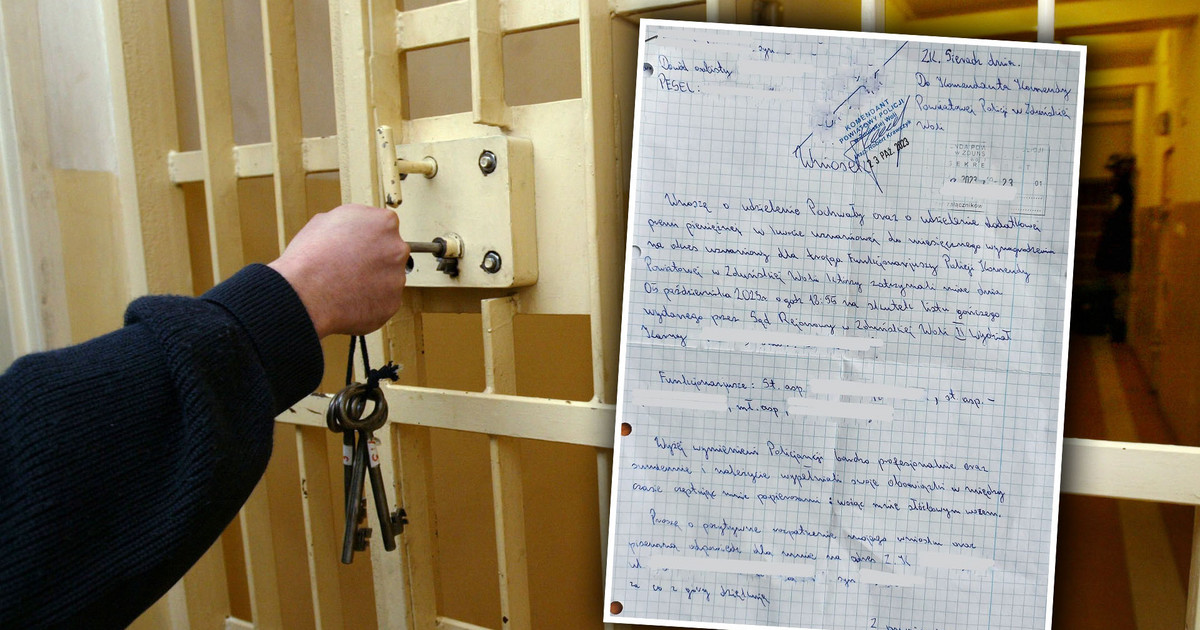 syn
Dowód osobisty
PESEL:
ZK. Sieradz dnia.
Do Komendanta Komendy
Powiatowej Policji w Zduńskiej
Woli
KOMENDANT
POWIATOWY POLICJI
w Zduńskiej Woli
23 PAŹ. 2023
Wniosek
Wnoszę o udzielenie Pochwały oraz o udzielenie dodatkowej
premi pieniężnej w kwocie uznaniowej do miesięcznego wynagrodzenia
na okres uznaniowy dla trojga Funkcjonariuszy Policji Komendy
Powiatowej w Zduńskiej Woli którzy zatrzymali mnie dnia
05 października 2023r o godz 18:55 na skutek listu gończego
wydanego przez Sąd Rejonowy w Zduńskiej Woli II Wydział
Karny
Funkcjonariusze: St. asp. , st. asp. -
, mł. asp.,
Wyżej wymienieni Policjanci bardzo profesjonalnie oraz
sumiennie i należycie wypełniali swoje obowiązki w między
czasie częstując mnie papierosami i wożąc mnie służbowym wozem.
Proszę o pozytywne rozpatrzenie mojego wniosku oraz
przesłania odpowiedzi dla mnie na adres Z.K
ul syn
za co z góry dziękuję
Z